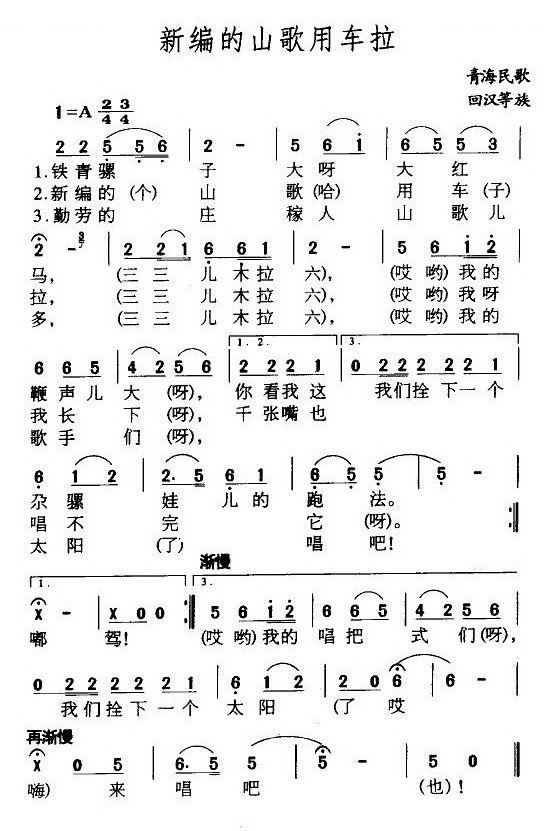 新编的山歌用车拉
青海民歌
回汉等族
1=A 2/4 3/4
2 2 5 5 6 2 - 5 6 1 6 5 5
1.铁青骡 子 大呀 大红
2.新编的(个) 山 歌(哈) 用车(子)
3.勤劳的 庄 稼人 山歌儿
2 - 3 2 2 1 6 6 6 1 2 - 5 6 1 2
马, (三三儿木拉六), (哎哟)我的
拉, (三三儿木拉六), (哎哟)我呀
多, (三三儿木拉六), (哎哟)我的
1. 2. 3.
6 6 5 4 2 5 6 2 2 2 1 0 2 2 2 2 2 1
鞭声儿大(呀), 你看我这 我们拴下一个
我长下(呀), 千张嘴也
歌手们(呀),
6 1 2 2. 5 6 1 6 5 5 5 -
尕骡娃儿的跑法。
唱不完它(呀)。
太阳(了)唱吧!
渐慢
1. 3.
x - x 0 0 5 6 1 2 6 5 6 4 2 5 6
嘟 驾! (哎哟)我的唱把式们(呀),
0 2 2 2 2 2 1 6 1 2 2 0 6 6 6 -
我们拴下一个太阳(了哎
再渐慢
x 0 5 6. 5 5 2 5 - 5 0
嗨)来唱吧 (也)!